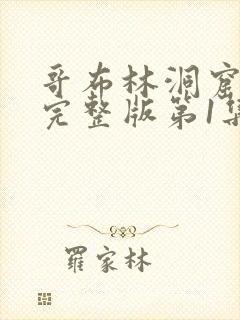 哥布林洞窟
完整版第1集
羅家林